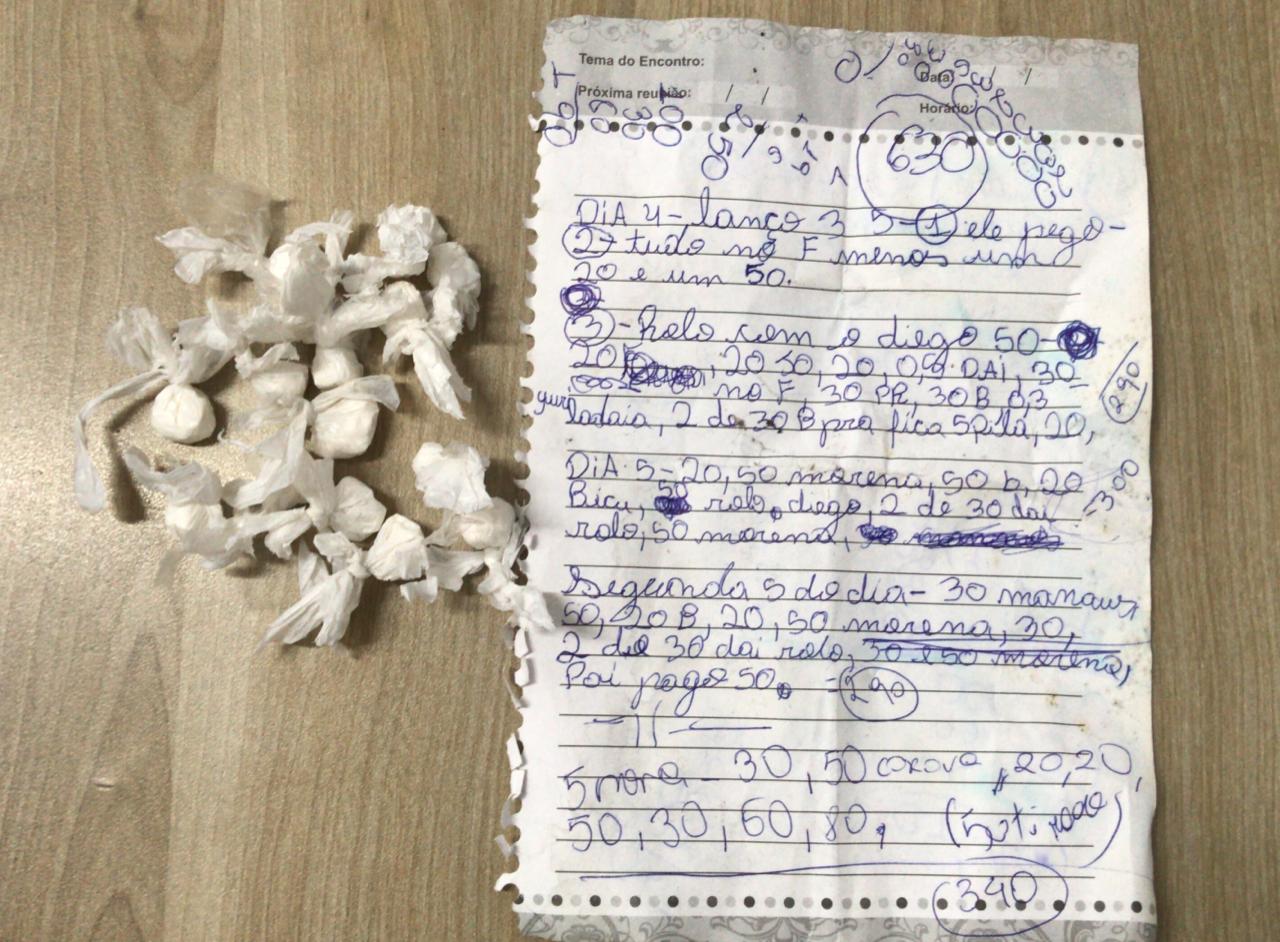 Tema do Encontro:
Data: / /
Próxima reunião: / /
Horário:
630
DiA 4 - lanço 3 5 - 1 ele pego -
2 7 tudo no F menos um
20 e um 50.
3 - Rolo com o diego 50 -
20, 20 50, 20, DAi, 30
no F, 30 PR, 30 B 0,3
290
ladaia, 2 de 30 B pra fica 5 pila, 20,
DiA 5 - 20, 50 morena, 50 b, 20
Bicu, 50 rolo diego, 2 de 30 dai
300
rolo, 50 morena,
Segunda 5 do dia - 30 manaus,
50, 20 B, 20, 50 morena, 30,
2 de 30 dai rolo, 30 e 50 morena,
Pai pago 50. = 290
5 nora - 30, 50 coxova, 20, 20,
50, 30, 60, 80,
340